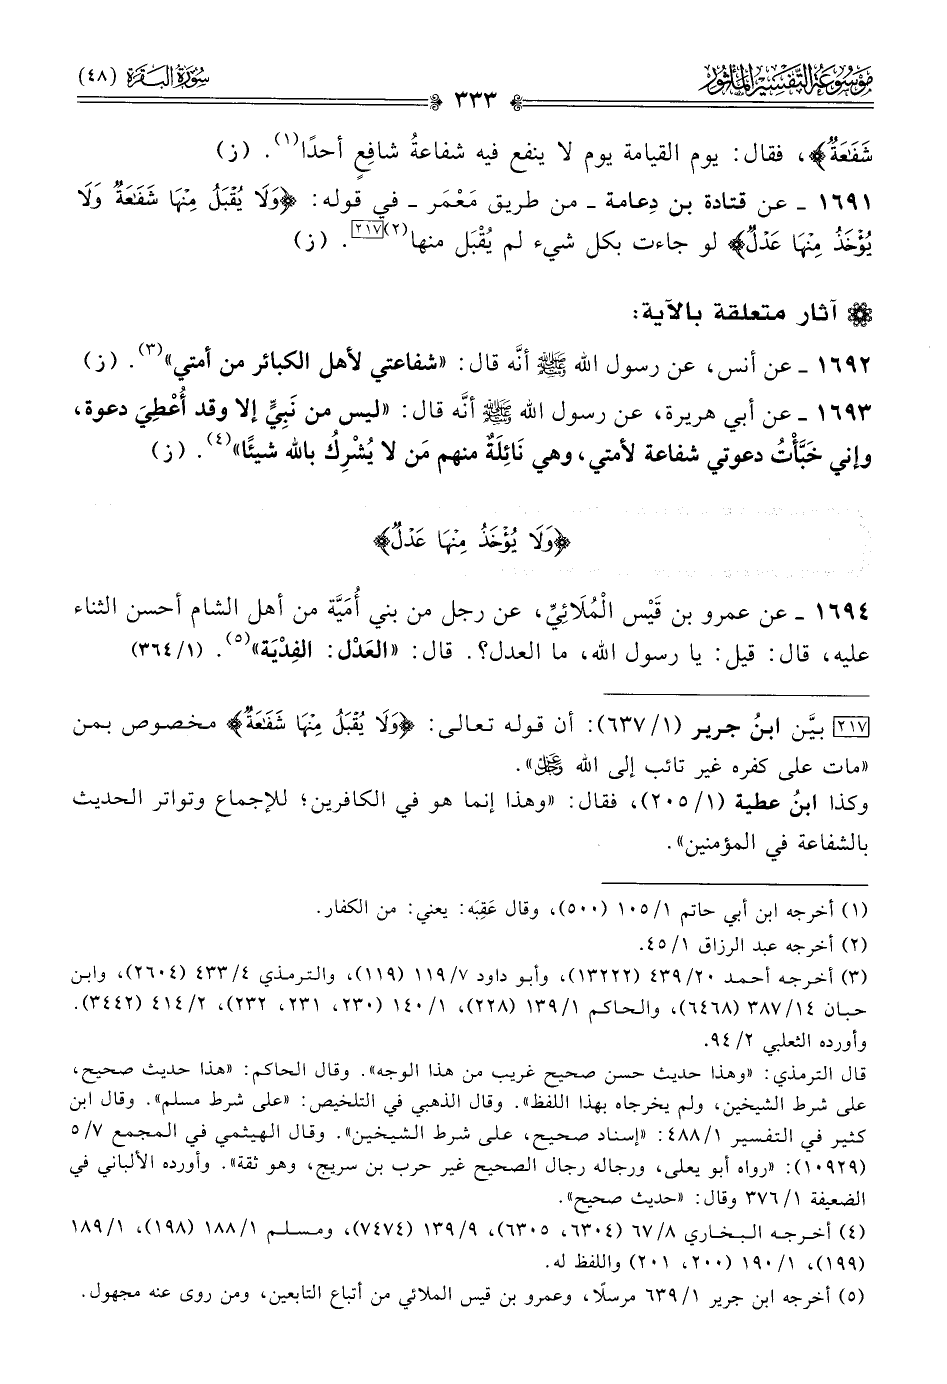 موسوعة التفسير المأثور
سورة البقرة (٤٨)
٣٣٣
شَفَٰعَةٌ﴾، فقال: يوم القيامة يوم لا ينفع فيه شفاعةُ شافعٍ أحدًا(١). (ز)
١٦٩١ ـ عن قتادة بن دِعامة ـ من طريق مَعْمَر ـ في قوله: ﴿وَلَا يُقْبَلُ مِنْهَا شَفَٰعَةٌ وَلَا
يُؤْخَذُ مِنْهَا عَدْلٌ﴾ لو جاءت بكل شيء لم يُقْبَل منها(٢)٢١٧. (ز)
آثار متعلقة بالآية:
١٦٩٢ ـ عن أنس، عن رسول الله ﷺ أنَّه قال: «شفاعتي لأهل الكبائر من أمتي»(٣). (ز)
١٦٩٣ ـ عن أبي هريرة، عن رسول الله ﷺ أنَّه قال: «ليس من نَبِيٍّ إلا وقد أُعْطِيَ دعوة،
وإني خَبَّأْتُ دعوتي شفاعة لأمتي، وهي نَائِلَةٌ منهم مَن لا يُشْرِكُ بالله شيئًا»(٤). (ز)
﴿وَلَا يُؤْخَذُ مِنْهَا عَدْلٌ﴾
١٦٩٤ ـ عن عمرو بن قَيْس الْمُلَائِيِّ، عن رجل من بني أُمَيَّة من أهل الشام أحسن الثناء
عليه، قال: قيل: يا رسول الله، ما العدل؟. قال: «العَدْل: الفِدْيَة»(٥). (١/٣٦٤)
٢١٧ بيَّن ابنُ جرير (١/٦٣٧): أن قوله تعالى: ﴿وَلَا يُقْبَلُ مِنْهَا شَفَٰعَةٌ﴾ مخصوص بمن
«مات على كفره غير تائب إلى الله عزّ وجلّ».
وكذا ابنُ عطية (١/٢٠٥)، فقال: «وهذا إنما هو في الكافرين؛ للإجماع وتواتر الحديث
بالشفاعة في المؤمنين».
(١) أخرجه ابن أبي حاتم ١/١٠٥ (٥٠٠)، وقال عَقِبَه: يعني: من الكفار.
(٢) أخرجه عبد الرزاق ١/٤٥.
(٣) أخرجه أحمد ٢٠/٤٣٩ (١٣٢٢٢)، وأبو داود ٧/١١٩ (١١٩)، والترمذي ٤/٤٣٣ (٢٦٠٤)، وابن
حبان ١٤/٣٨٧ (٦٤٦٨)، والحاكم ١/١٣٩ (٢٢٨)، ١/١٤٠ (٢٣٠، ٢٣١، ٢٣٢)، ٢/٤١٤ (٣٤٤٢).
وأورده الثعلبي ٢/٩٤.
قال الترمذي: «وهذا حديث حسن صحيح غريب من هذا الوجه». وقال الحاكم: «هذا حديث صحيح،
على شرط الشيخين، ولم يخرجاه بهذا اللفظ». وقال الذهبي في التلخيص: «على شرط مسلم». وقال ابن
كثير في التفسير ١/٤٨٨: «إسناد صحيح، على شرط الشيخين». وقال الهيثمي في المجمع ٧/٥
(١٠٩٢٩): «رواه أبو يعلى، ورجاله رجال الصحيح غير حرب بن سريج، وهو ثقة». وأورده الألباني في
الضعيفة ١/٣٧٦ وقال: «حديث صحيح».
(٤) أخرجه البخاري ٨/٦٧ (٦٣٠٤، ٦٣٠٥)، ٩/١٣٩ (٧٤٧٤)، ومسلم ١/١٨٨ (١٩٨)، ١/١٨٩
(١٩٩)، ١/١٩٠ (٢٠٠، ٢٠١) واللفظ له.
(٥) أخرجه ابن جرير ١/٦٣٩ مرسلًا، وعمرو بن قيس الملائي من أتباع التابعين، ومن روى عنه مجهول.